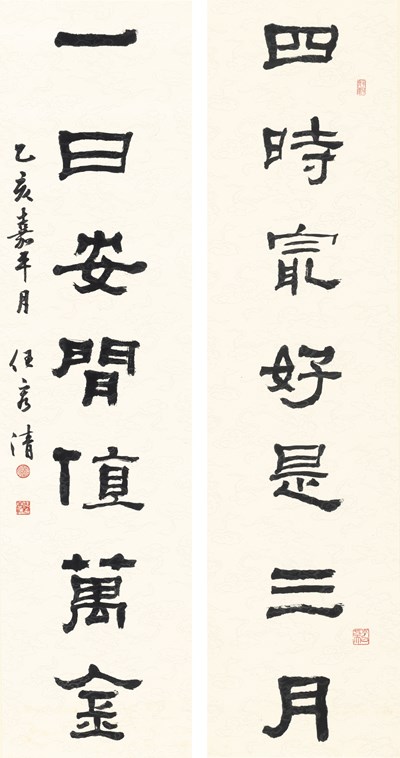 四時㝡好是三月
一日安閒值萬金
乙亥嘉平月 任容清